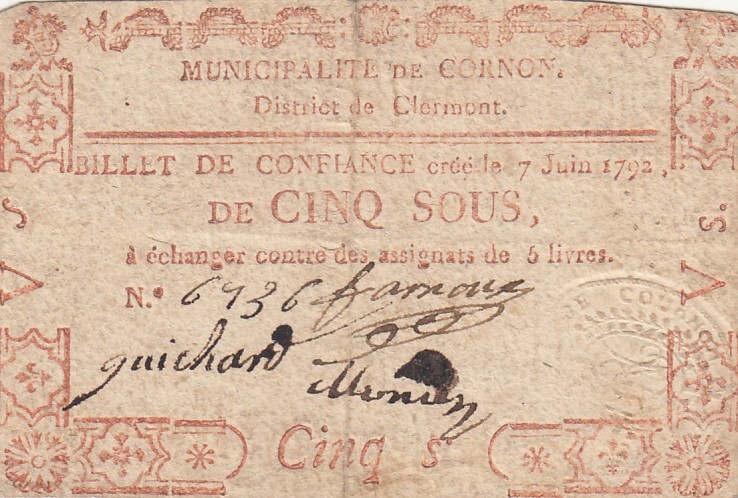 MUNICIPALITÉ DE CORNON.
District de Clermont.
BILLET DE CONFIANCE créé le 7 Juin 1792,
DE CINQ SOUS,
à échanger contre des assignats de 5 livres.
N.° 6936
guichard
V s
V s.
Cinq s